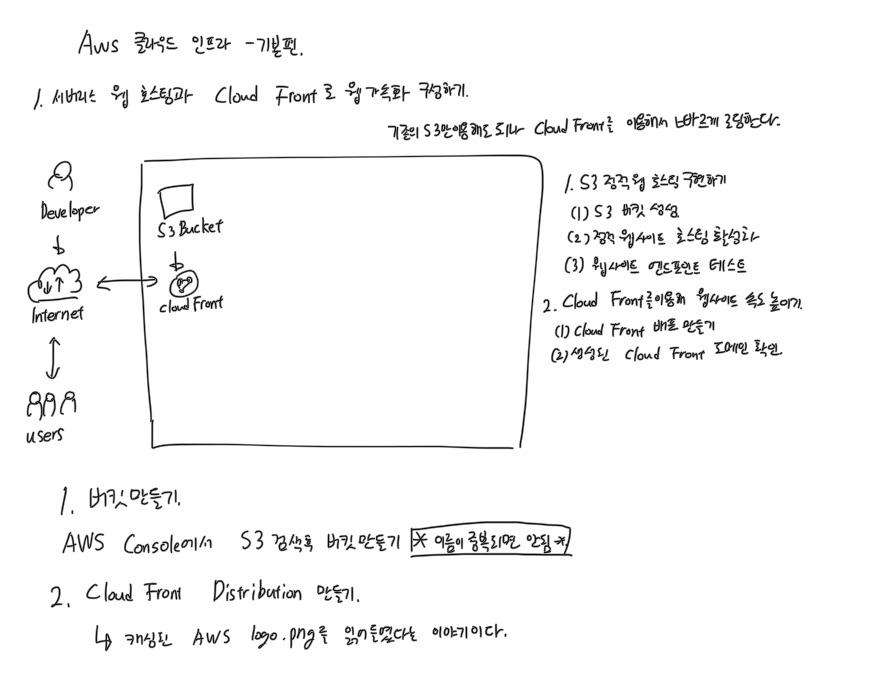 Aws 클라우드 인프라 - 기본편.
1. 서버리스 웹 호스팅과 Cloud Front로 웹 가속화 구성하기.
기존의 S3만 이용해도 되나 Cloud Front를 이용해서 더 빠르게 로딩한다.
Developer
Internet
users
S3 Bucket
cloud Front
1. S3 정적 웹 호스팅 구현하기
(1) S3 버킷 생성
(2) 정적 웹사이트 호스팅 활성화
(3) 웹사이트 엔드포인트 테스트
2. Cloud Front를 이용해 웹사이트 속도 높이기.
(1) Cloud Front 배포 만들기
(2) 생성된 Cloud Front 도메인 확인
1. 버킷 만들기.
AWS Console에서 S3 검색후 버킷 만들기 * 이름이 중복되면 안됨 *
2. Cloud Front Distribution 만들기.
↳ 캐싱된 AWS logo.png를 읽어들였다는 이야기이다.